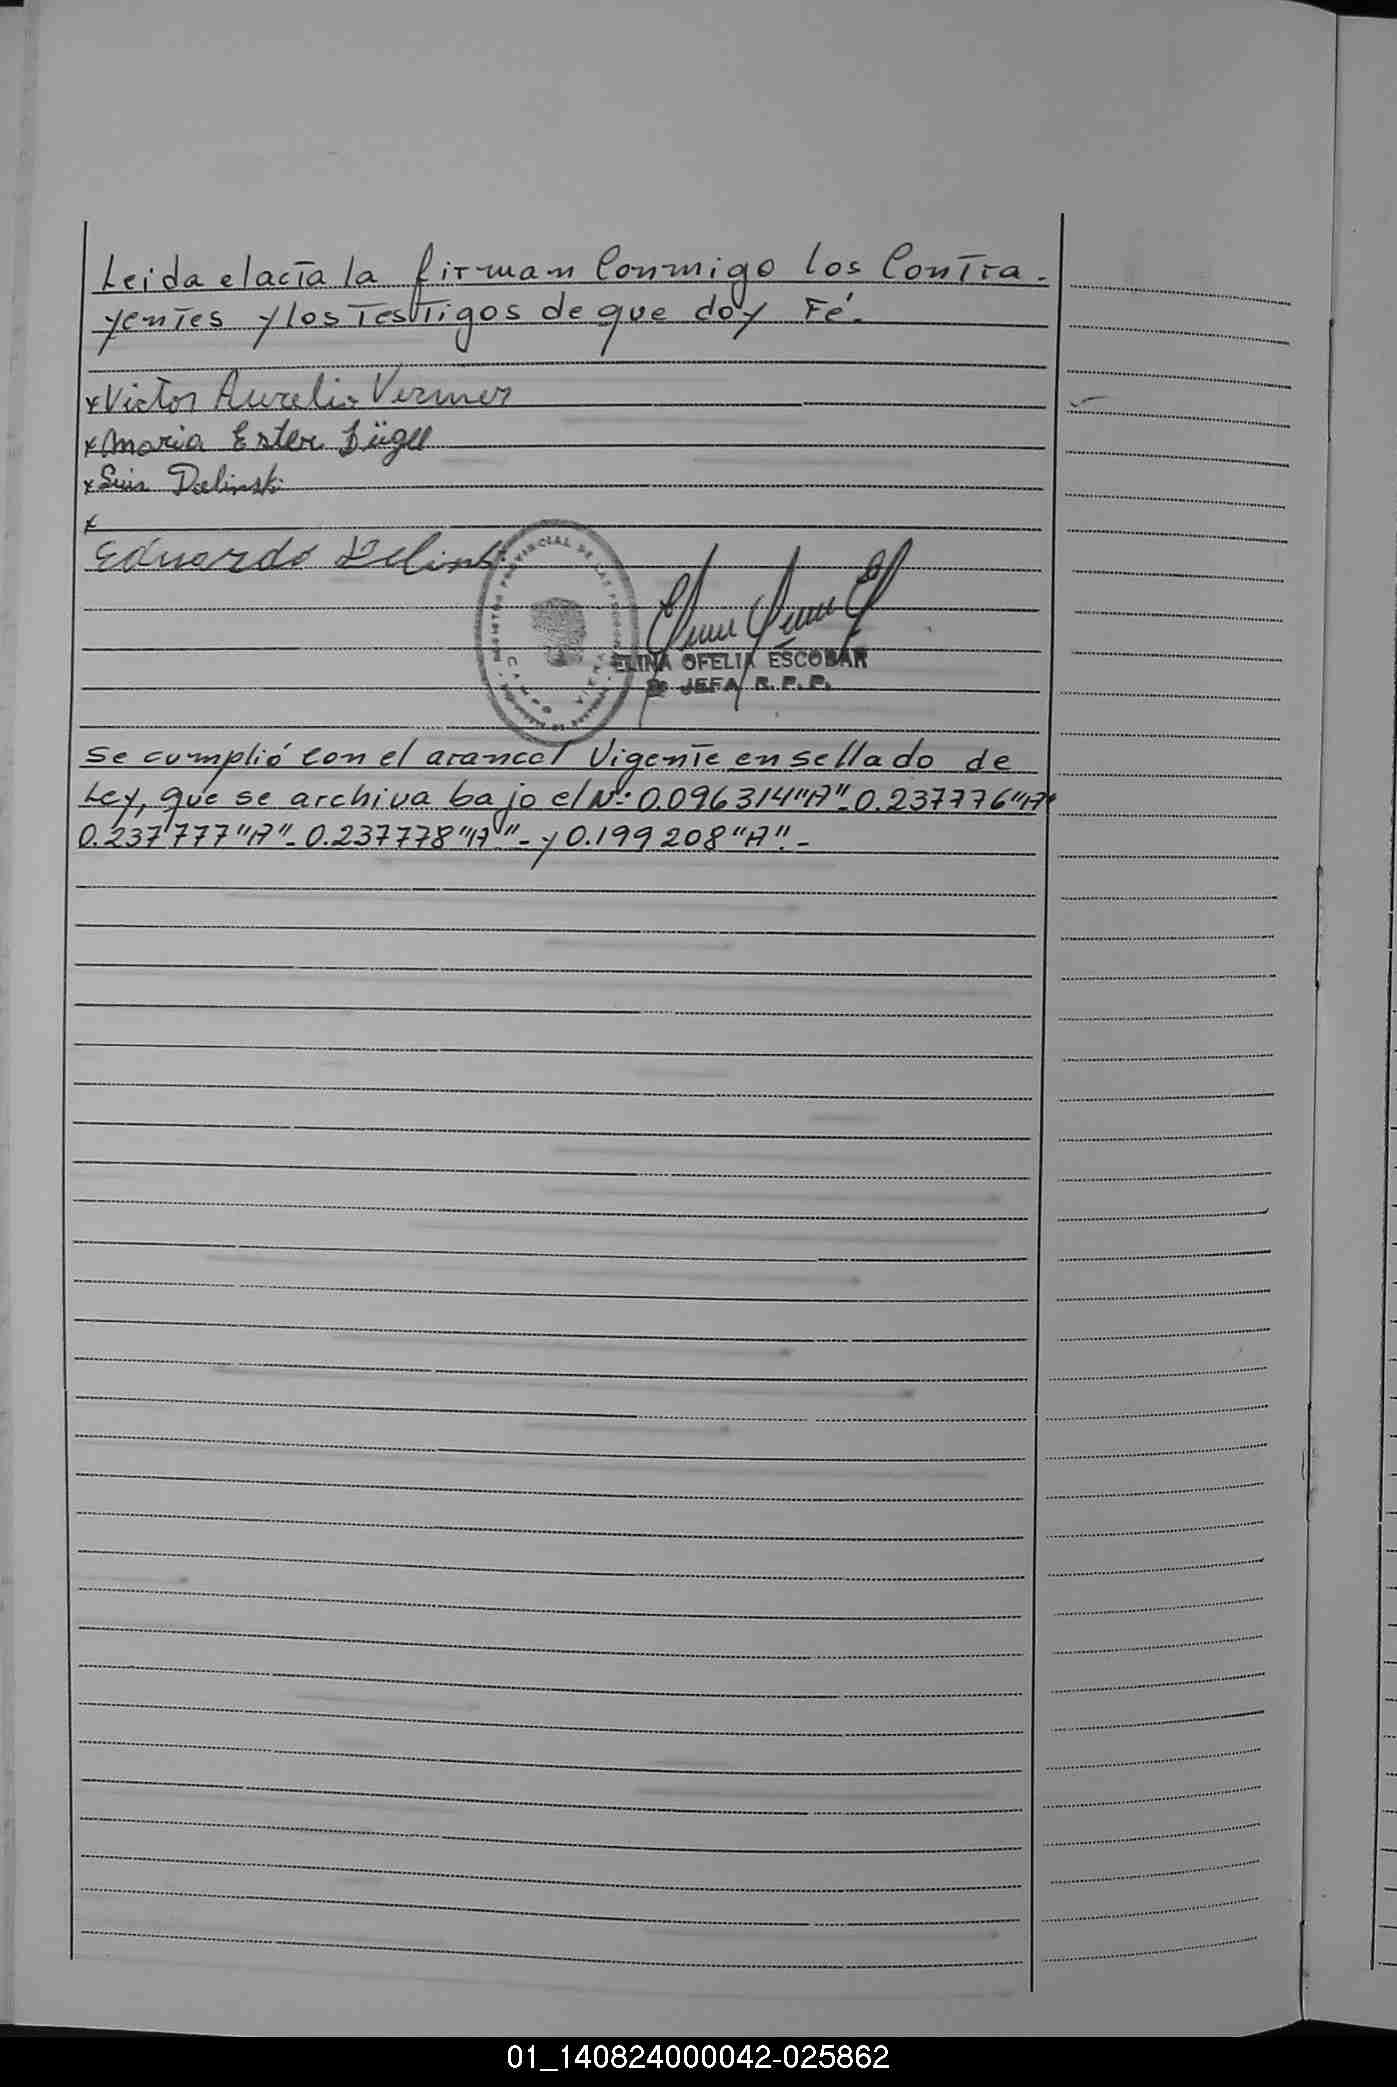 Leida el acta la firman Conmigo los Contra-
yentes y los Testigos de que doy Fé.-
x Victor Aurelio Vermer
x Maria Ester Bügel
x Luis Delinski
x
Eduardo Delinski
REGISTRO PROVINCIAL DE LAS PERSONAS
CAMPO VIERA
ELINA OFELIA ESCOBAR
JEFA R. P. P.
Se cumplió con el arancel Vigente en sellado de
Ley, que se archiva bajo el Nº: 0.096314"A"-0.237776"A"
0.237777"A"-0.237778"A"-y 0.199208"A".-
01_140824000042-025862